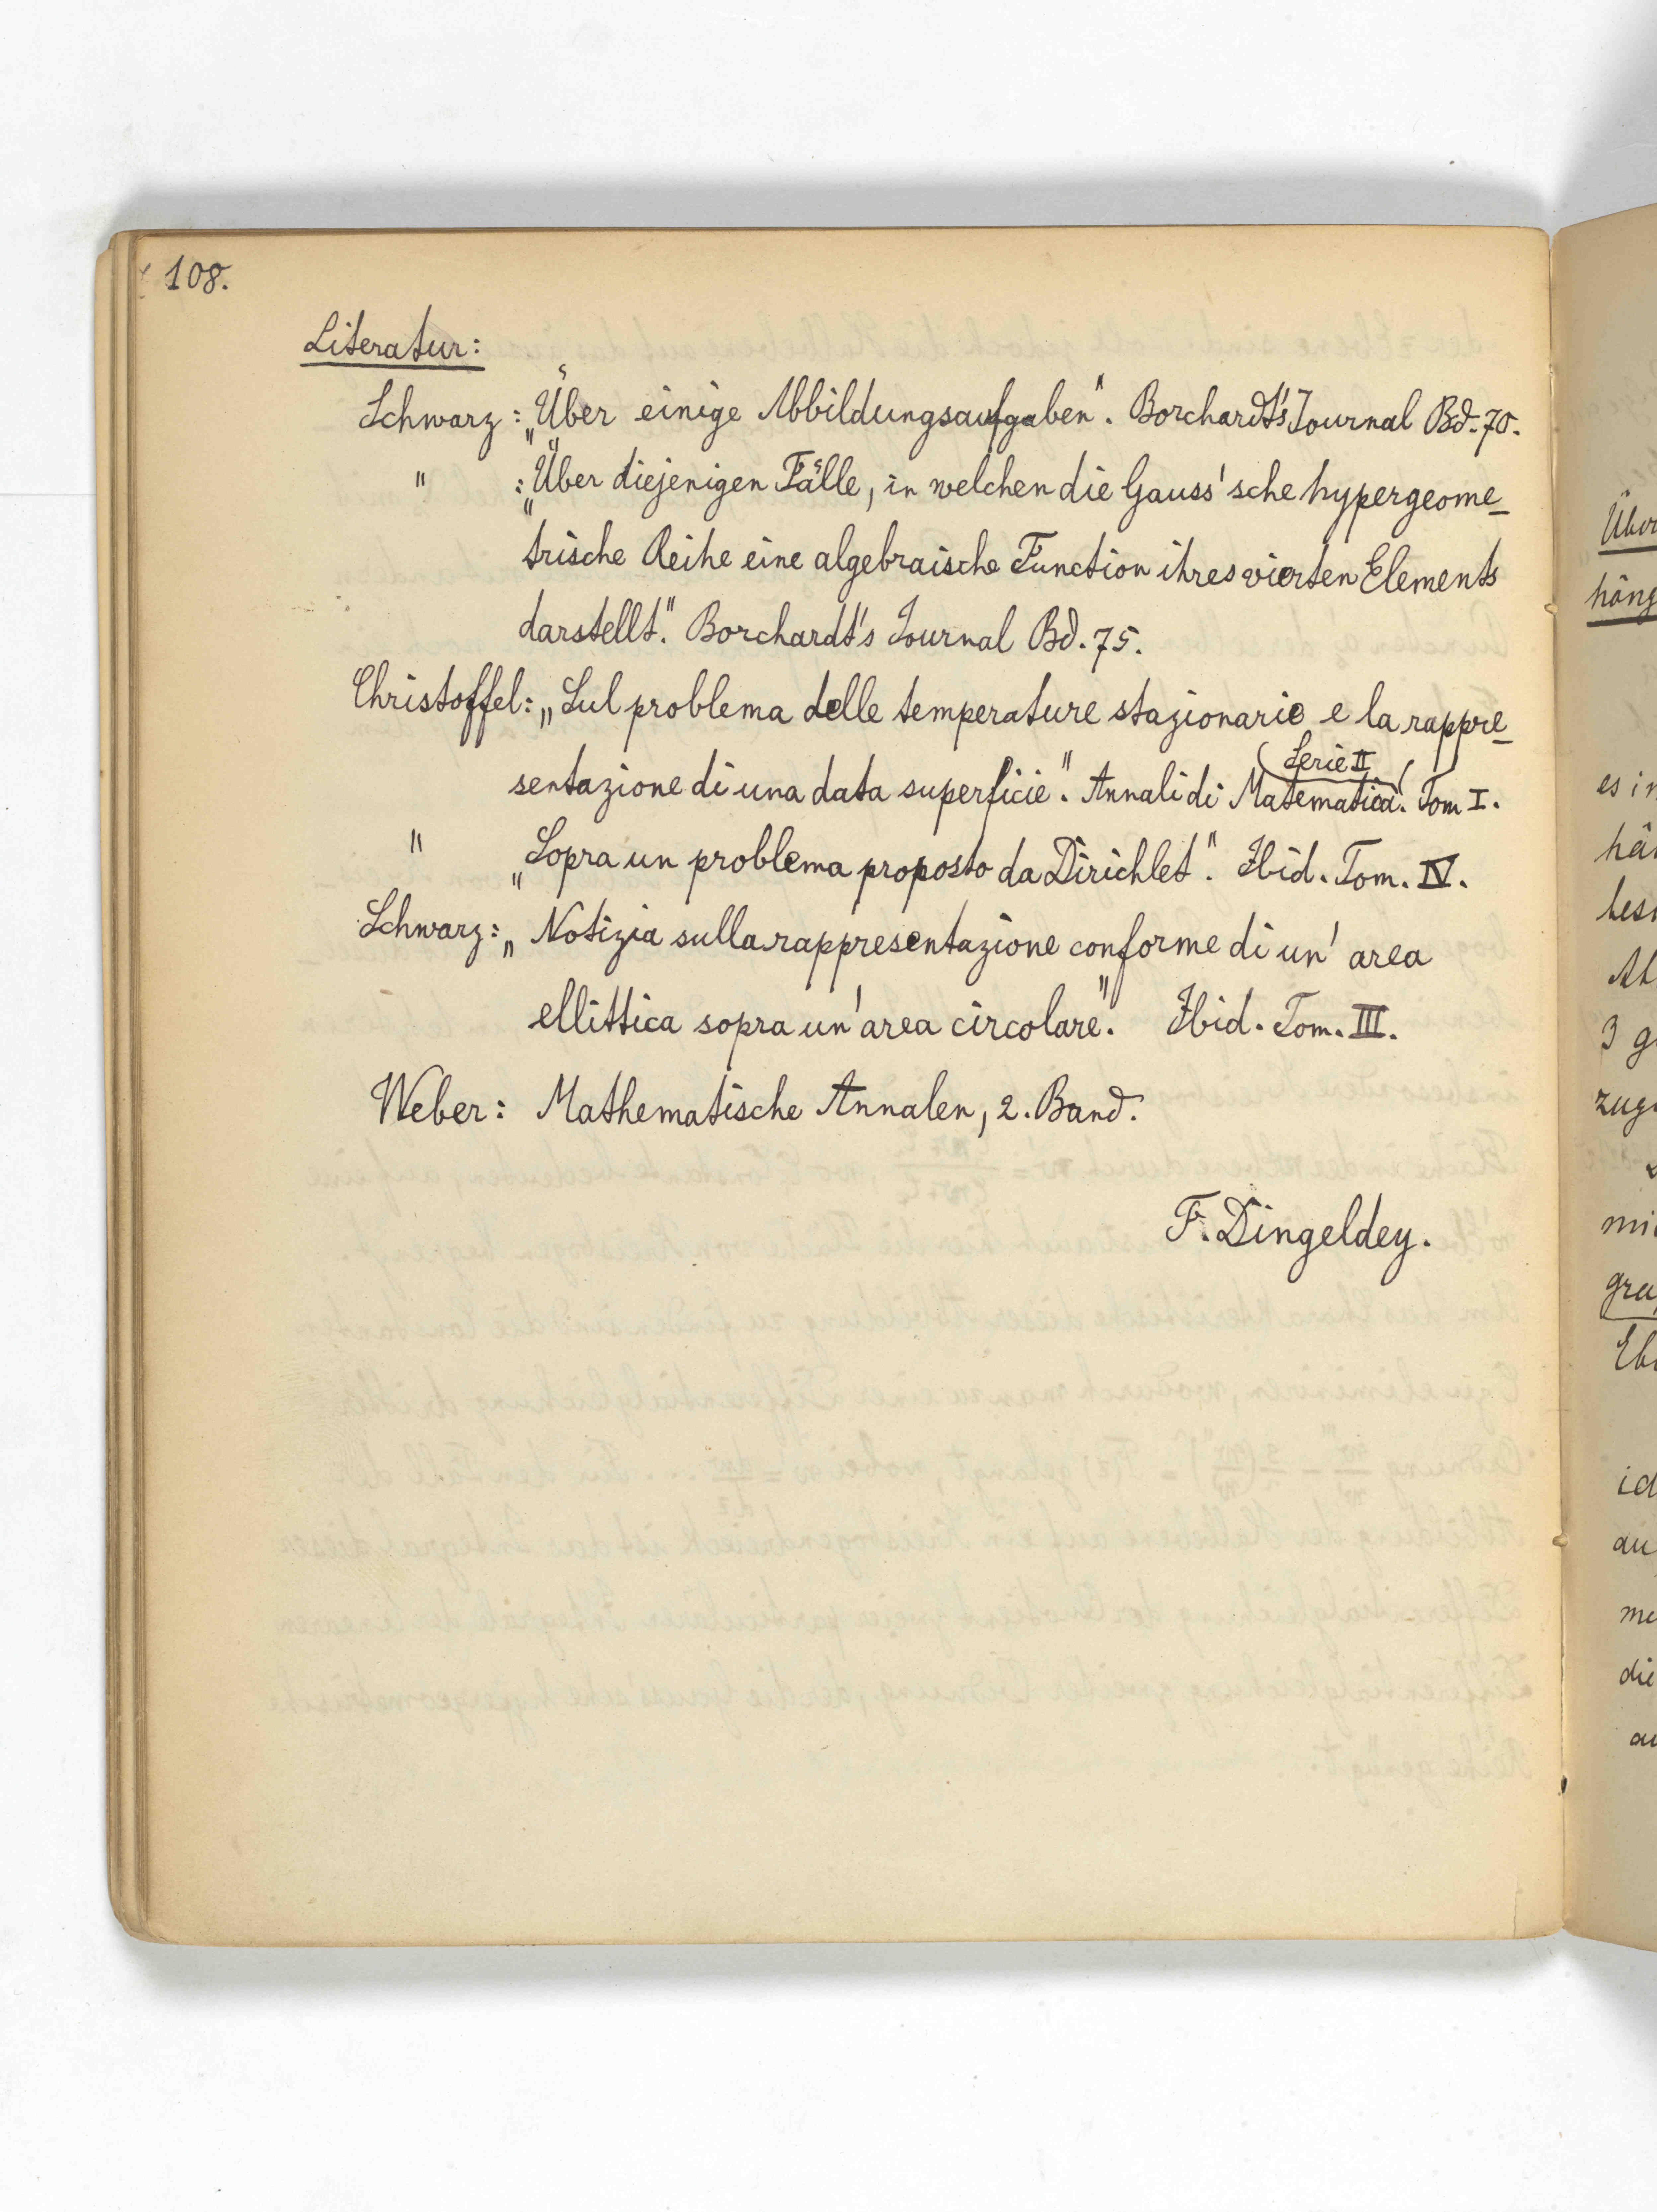 108.
Literatur:
Schwarz: „Über einige Abbildungsaufgaben". Borchardt's Journal Bd. 70.
" : „Über diejenigen Fälle, in welchen die Gauss'sche hypergeome-
trische Reihe eine algebraische Function ihres vierten Elements
darstellt." Borchardt's Journal Bd. 75.
Christoffel: „Sul problema delle temperature stazionarie e la rappre-
sentazione di una data superficie". Annali di Matematica. Tom I.
Serie II
" „Sopra un problema proposto da Dirichlet". Ibid. Tom. IV.
Schwarz: „Notizia sulla rappresentazione conforme di un' area
ellittica sopra un'area circolare". Ibid. Tom. III.
Weber: Mathematische Annalen, 2. Band.
F. Dingeldey.